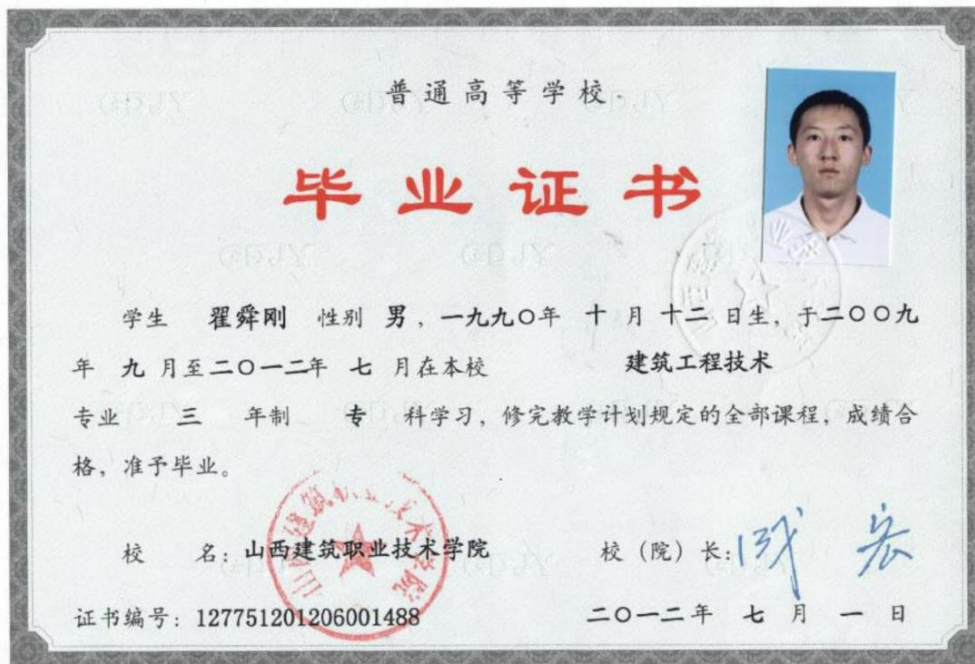 普通高等学校
毕业证书
学生 翟舜刚 性别 男，一九九〇年 十 月 十二 日生，于二〇〇九
年 九 月至二〇一二年 七 月在本校 建筑工程技术
专业 三 年制 专 科学习，修完教学计划规定的全部课程，成绩合
格，准予毕业。
山西建筑职业技术学院
校 名：山西建筑职业技术学院 校（院）长：
证书编号：127751201206001488 二〇一二年 七 月 一 日